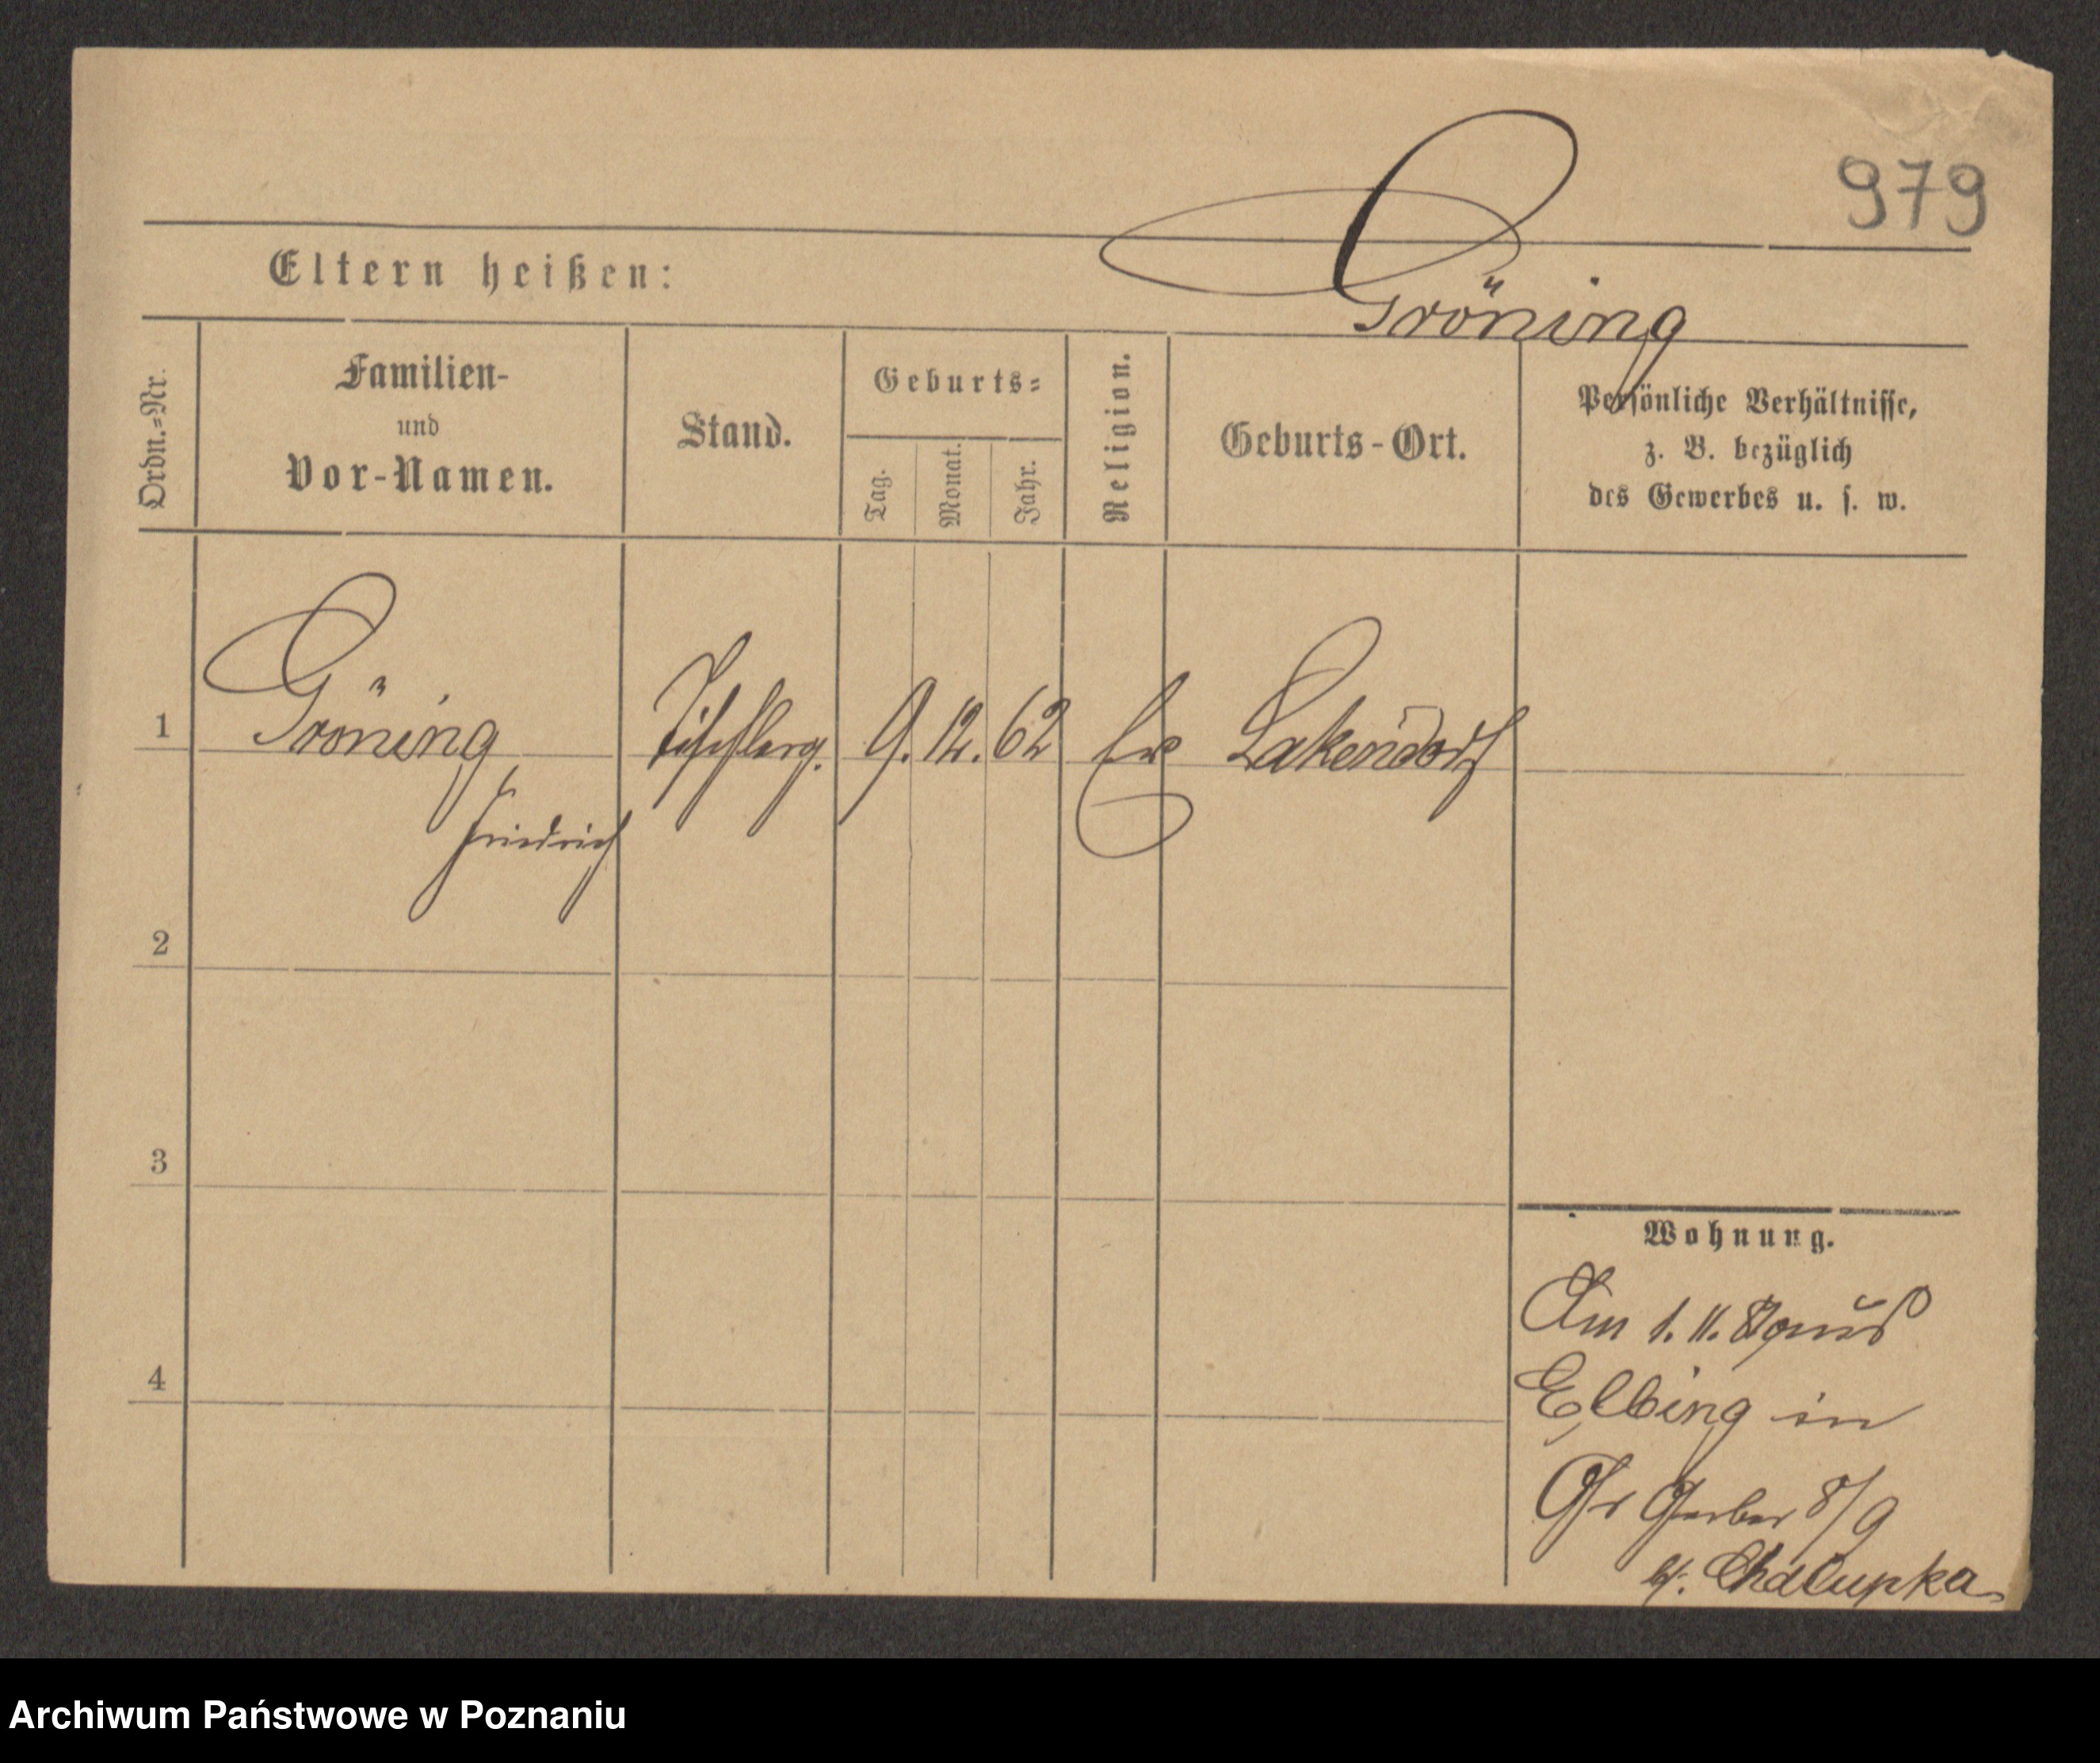 979
Gröning
Eltern heißen:
Ordn.=Nr.
Familien-
und
Vor-Namen.
Stand.
Geburts=
Tag.
Monat.
Jahr.
Religion.
Geburts-Ort.
Persönliche Verhältnisse,
z. B. bezüglich
des Gewerbes u. s. w.
1 Gröning Tischlerg. 9. 12. 62 Ev Lakendorf
Friedrich
2
3
4
Wohnung.
Am 1. 11. aus
Elbing in
Gr Gerber 8/9
b/. Chalupka
Archiwum Państwowe w Poznaniu